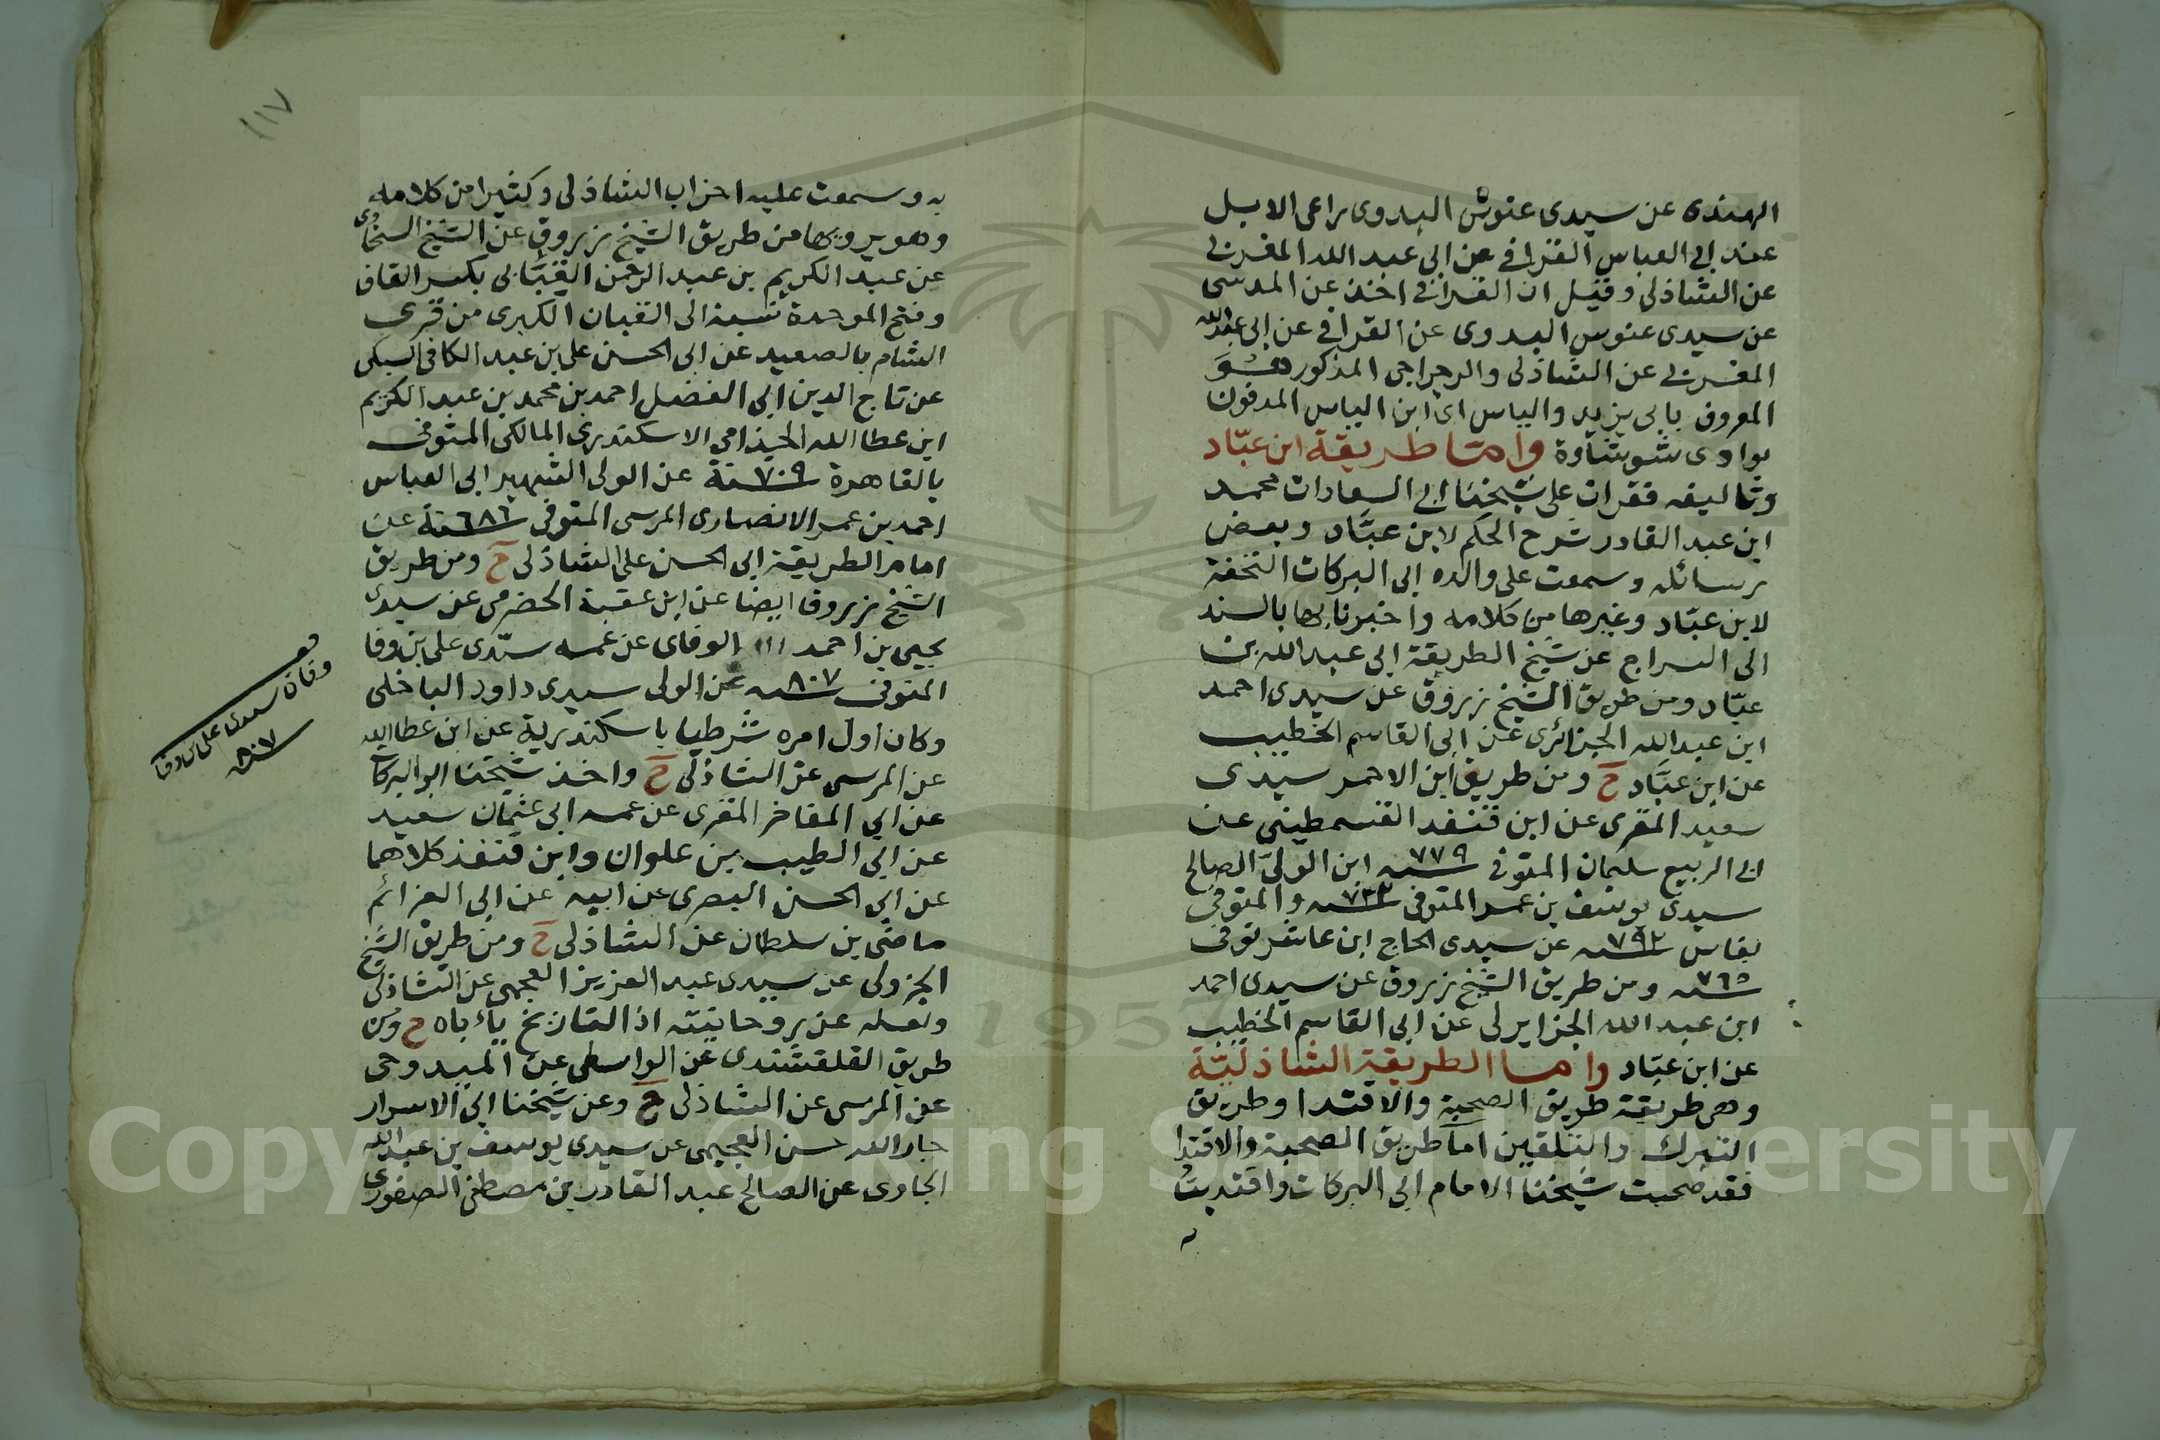 الهندى عن سيدى عنوش البدوى راعى الابل
عند ابي العباس القرافي عن ابى عبد الله المغربي
عن الشاذلي وقيل ان القرافي اخذ عن المدسى
عن سيدى عنوس البدوى عن القرافي عن ابى عبد الله
المغربي عن الشاذلى والرجراجى المذكور هو
المعروف بابى يزيد والياس اى ابن الياس المدفون
بوادى شوشاوة واما طريقة ابن عبّاد
وتاليفه فقرات على شيخنا ابي السعادات محمد
ابن عبد القادر شرح الحكم لابن عبّاد وبعض
رسائله وسمعت على والده ابى البركات التحفة
لابن عبّاد وغيرها من كلامه واخبرنا بها بالسند
الى السراج عن شيخ الطريقة ابى عبد الله بن
عبّاد ومن طريق الشيخ زروق عن سيدى احمد
ابن عبد الله الجزائرى عن ابى القاسم الخطيب
عن ابن عبّاد ح ومن طريق ابن الاحمر سيدى
سعيد المقرى عن ابن قنفد القسمطينى عن
ابي الربيع سليمان المتوفى سنه ٧٧٩ ابن الولى الصالح
سيدى يوسف بن عمر المتوفى سنه ٧٣٣ والمتوفى
بفاس سنه ٧٩٢ عن سيدى الحاج ابن عاشر توفى
سنه ٧٦٥ ومن طريق الشيخ زروق عن سيدى احمد
ابن عبد الله الجزايرلى عن ابى القاسم الخطيب
عن ابن عبّاد واما الطريقة الشاذليّة
وهى طريقة طريق الصحبة والاقتدا وطريق
التبرك والتلقين اما طريق الصحبة والاقتدا
فقد صحبت شيخنا الامام ابى البركات واقتديت
به
١١٧
به وسمعت عليه احزاب الشاذلى وكثيرا من كلامه
وهو يرويها من طريق الشيخ زروق عن الشيخ السخاوى
عن عبد الكريم بن عبد الرحمن القبّانى بكسر القاف
وفتح الموحدة نسبة الى القبان الكبرى من قرى
الشام بالصعيد عن ابى الحسن على بن عبد الكافى السبكى
عن تاج الدين ابى الفضل احمد بن محمد بن عبد الكريم
ابن عطا الله الجذامى الاسكندرى المالكى المتوفى
بالقاهرة سنة ٧٠٩ عن الولى الشهير ابى العباس
احمد بن عمر الانصارى المرسى المتوفى سنة ٦٨٦ عن
امام الطريقة ابى الحسن على الشاذلى ح ومن طريق
الشيخ زروق ايضا عن ابن عقبة الحضرمى عن سيدى
يحيى بن احمد الوفاى عن عمه سيّدى على بن وفا
المتوفى سنه ٨٠٧ عن الولى سيدى داود الباخلى
وكان اول امره شرطيا باسكندرية عن ابن عطا الله
عن المرسى عن الشاذلى ح واخذ شيخنا ابو البركات
عن ابي المفاخر المقرى عن عمه ابى عثمان سعيد
عن ابي الطيب بن علوان وابن قنفذ كلاهما
عن ابي الحسن البصرى عن ابيه عن ابى العزائم
ماضى بن سلطان عن الشاذلى ح ومن طريق الشيخ
الجزولى عن سيدى عبد العزيز العجمى عن الشاذلى
ولعله عن روحانيته اذ التاريخ ياباه ح ومن
طريق القلقشندى عن الواسطى عن الميدومى
عن المرسى عن الشاذلى ح وعن شيخنا ابي الاسرار
جار الله حسن العجيمى عن سيدى يوسف بن عبد الله
الجاوى عن الصالح عبد القادر بن مصطفى الصفورى
وفاة سيدى على بن وفا
سنه ٨٠٧
1957
Copyright © King Saud University